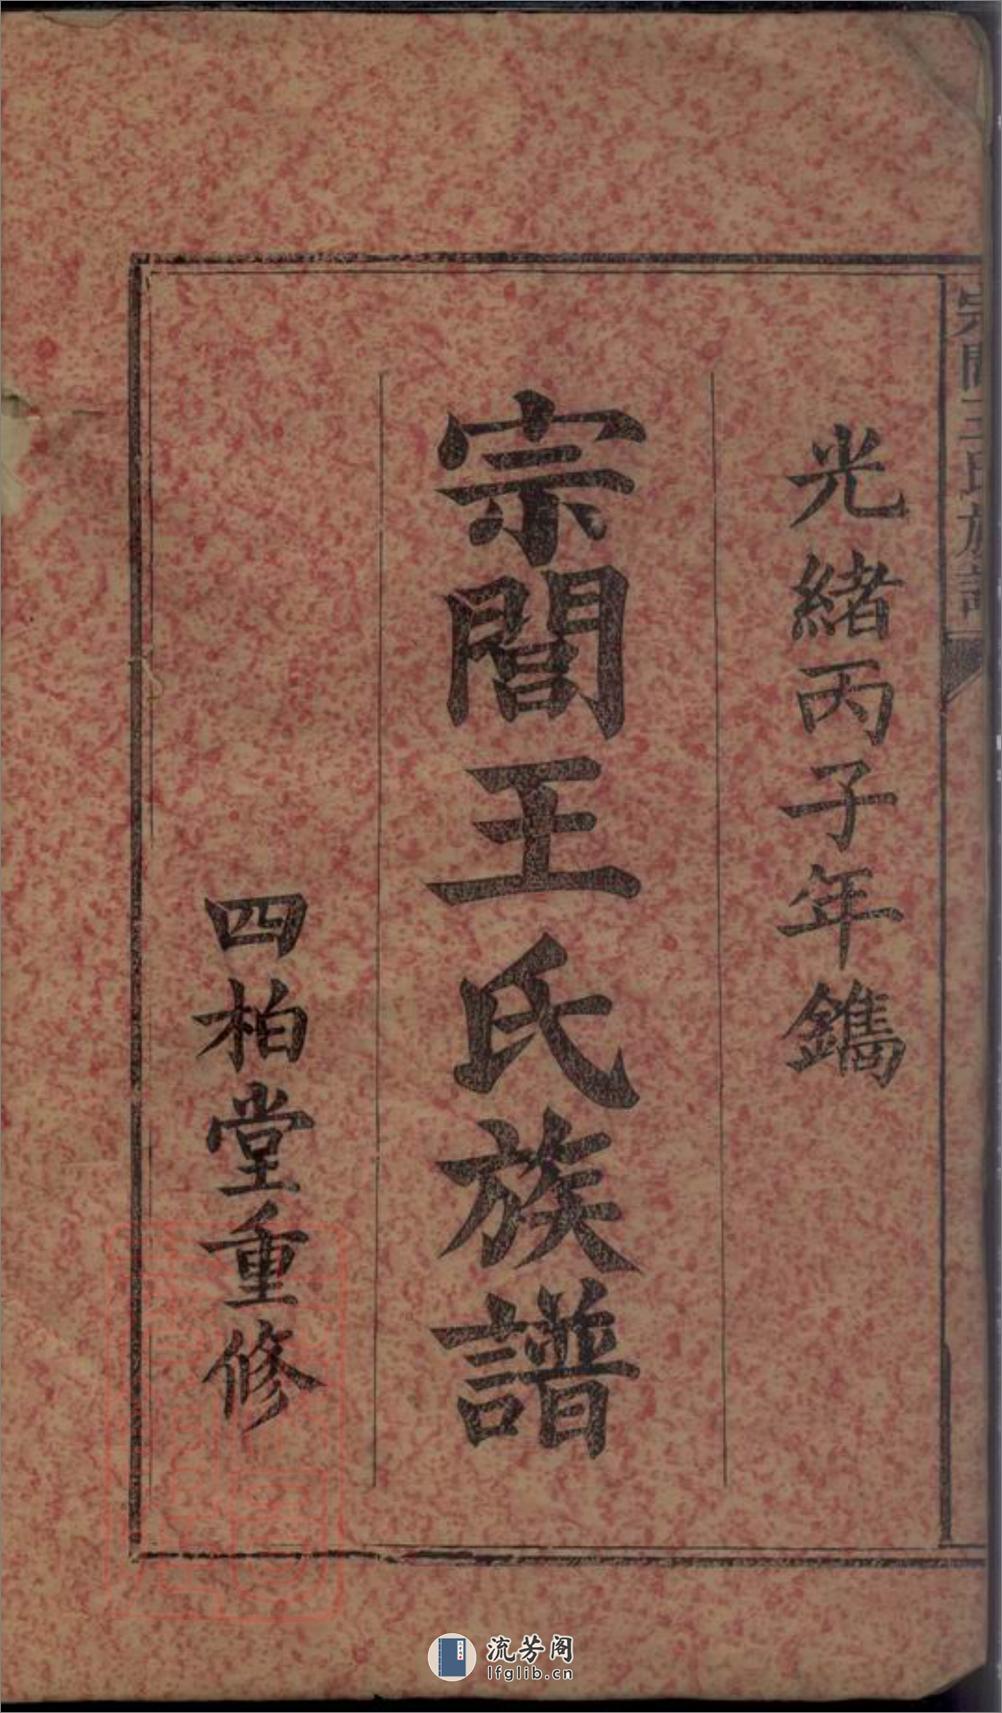 宗閻王氏族譜
光緒丙子年鐫
宗閻王氏族譜
四柏堂重修
流芳阁
lfglib.cn